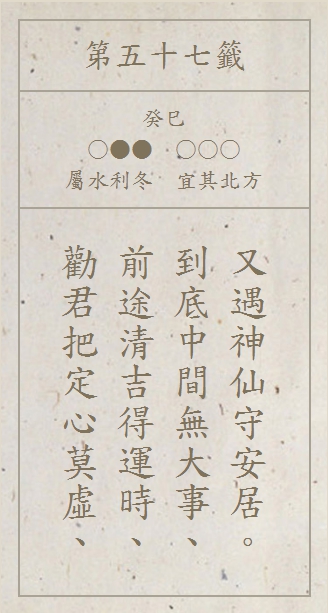 第五十七籤
癸巳
○●● ○○○
屬水利冬 宜其北方
勸君把定心莫虛、
前途清吉得運時、
到底中間無大事、
又遇神仙守安居。